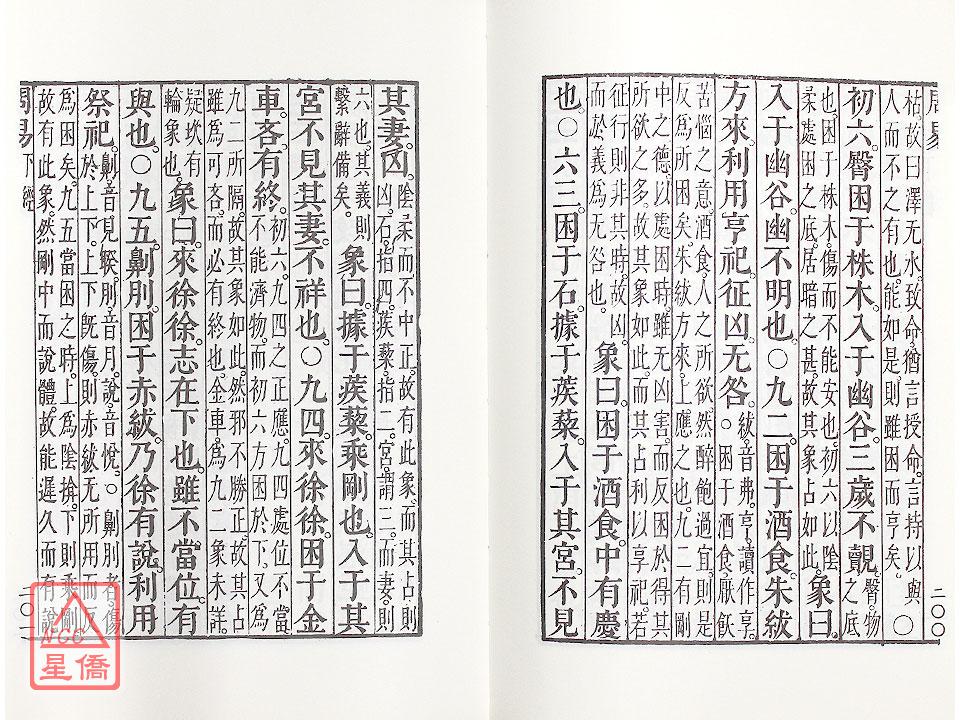 周易
二〇〇
枯。故曰澤无水致命。猶言授命。言持以與
人而不之有也。能如是則雖困而亨矣。○
初六。臀困于株木。入于幽谷。三歲不覿。臀。物
之底
也。困于株木。傷而不能安也。初六以陰
柔處困之底。居暗之甚。故其象占如此。象曰。
入于幽谷。幽不明也。○九二。困于酒食。朱紱
方來。利用亨祀。征凶。无咎。紱音弗。亨讀作享。
○困于酒食。厭飫
苦惱之意。酒食。人之所欲。然醉飽過宜。則是
反爲所困矣。朱紱方來。上應之也。九二有剛
中之德。以處困時。雖无凶害。而反困於得其
所欲之多。故其象如此。而其占利以享祀。若
征行則非其時。故凶。
而於義爲无咎也。象曰。困于酒食。中有慶
也。○六三。困于石。據于蒺藜。入于其宮。不見
其妻。凶。陰柔而不中正。故有此象。而其占則
凶。石指四。蒺藜指二。宮謂三。而妻則
六也。其義則
繫辭備矣。象曰。據于蒺藜。乘剛也。入于其
宮不見其妻。不祥也。○九四。來徐徐。困于金
車。吝。有終。初六。九四之正應。九四處位不當。
不能濟物。而初六方困於下。又爲
九二所隔。故其象如此。然邪不勝正。故其占
雖爲可吝。而必有終也。金車爲九二象。未詳。
疑坎有
輪象也。象曰。來徐徐。志在下也。雖不當位。有
與也。○九五。劓刖。困于赤紱。乃徐有說。利用
祭祀。劓音見睽。刖音月。說音悅。○劓刖者。傷
於上下。上下既傷。則赤紱无所用而反
爲困矣。九五當困之時。上爲陰揜。下則乘剛。
故有此象。然剛中而說體。故能遲久而有說
周易 下經
二〇一
NCC
星僑